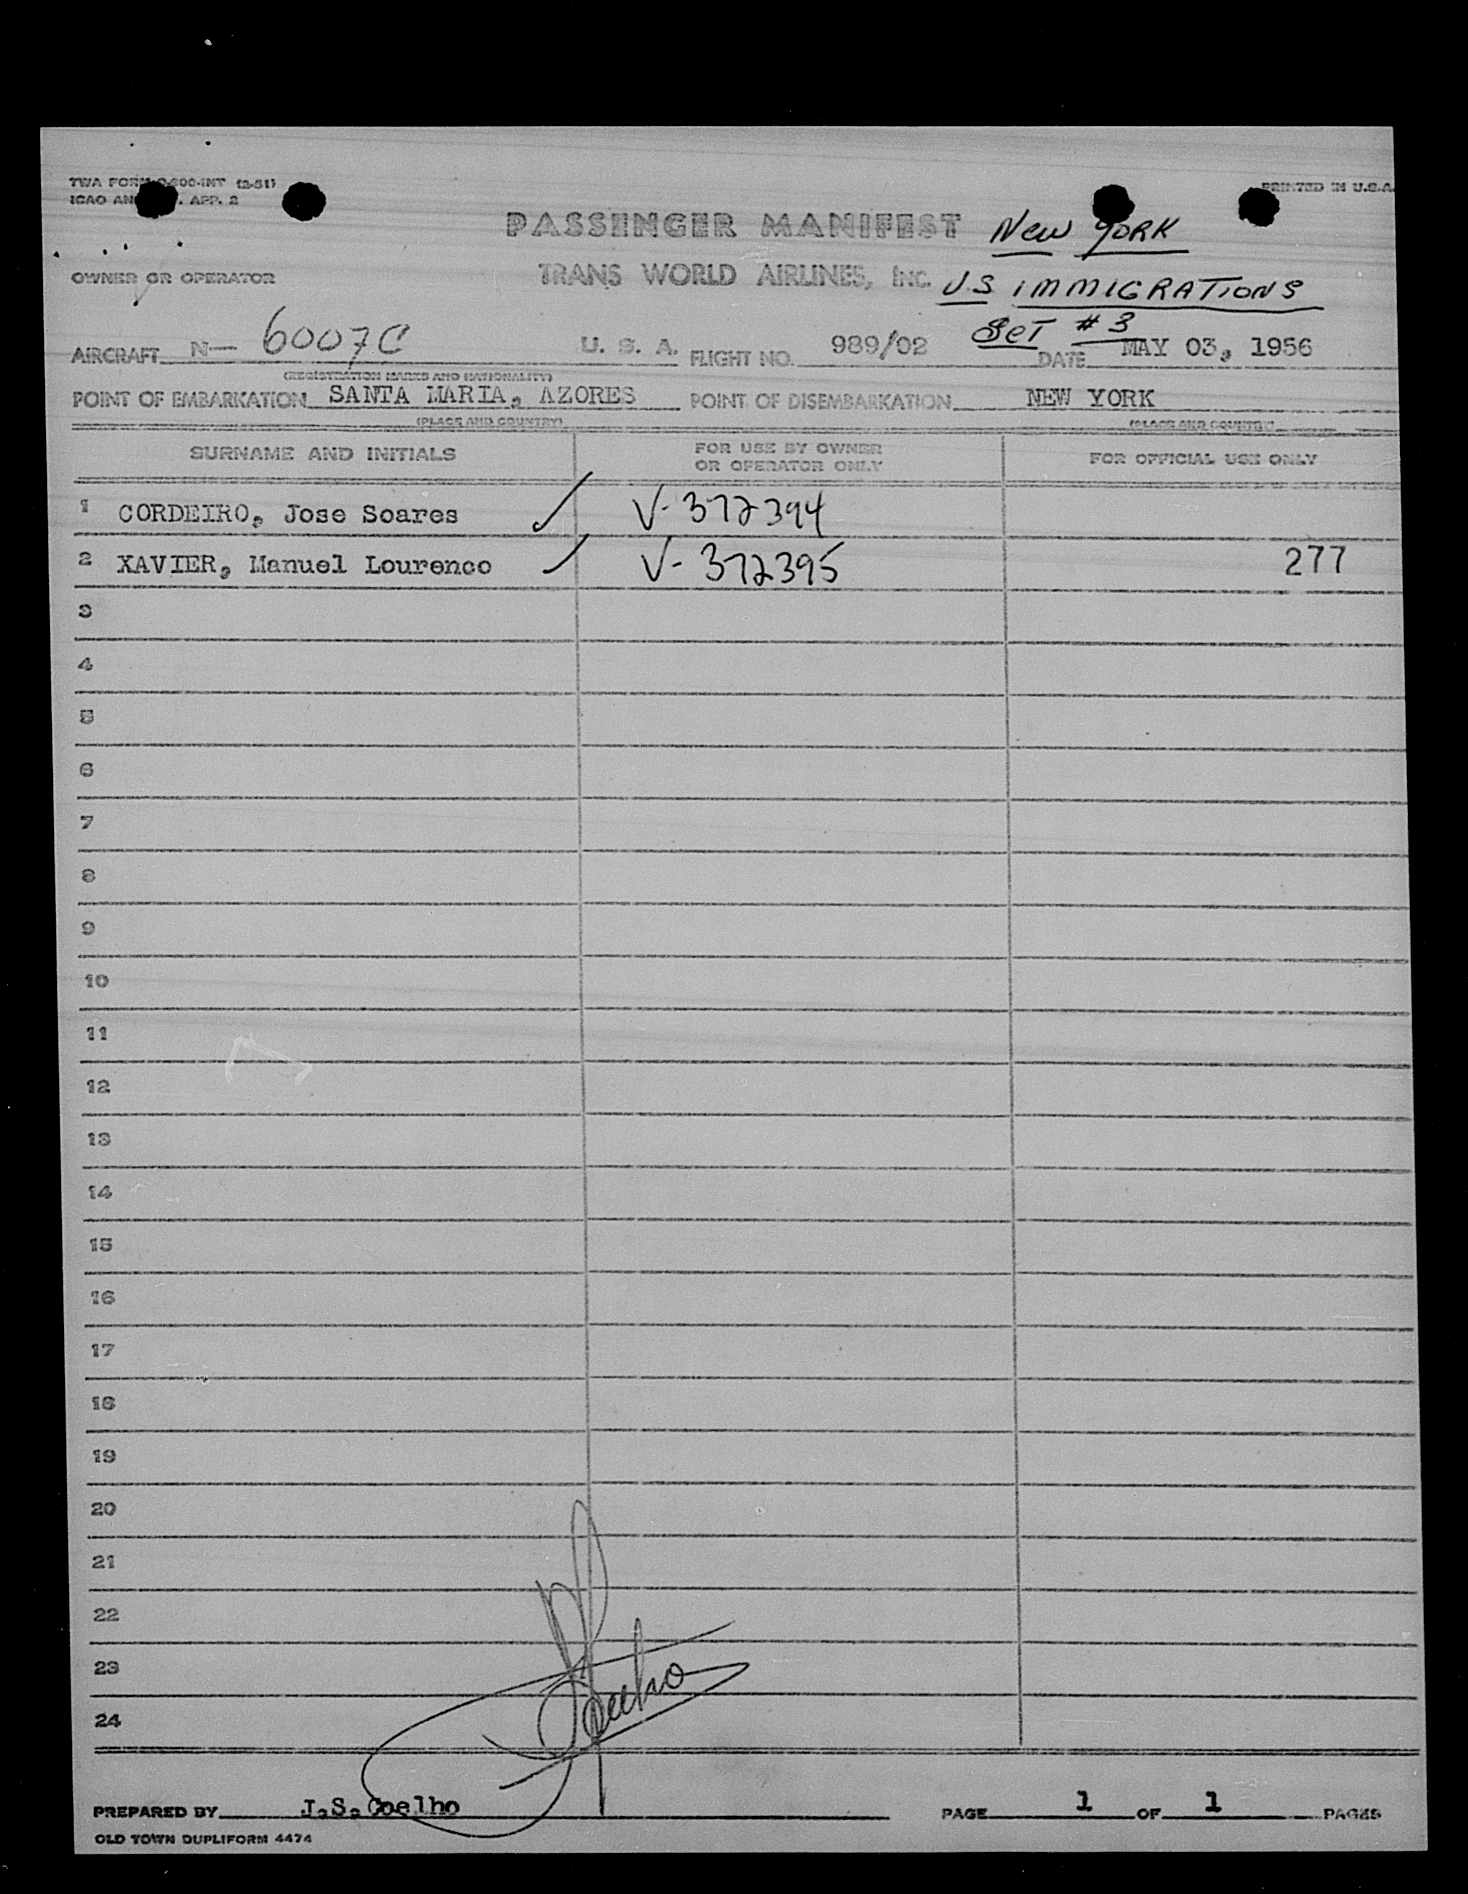 TWA FORM 00-INT (2-51)
PRINTED IN U.S.A.
ICAO APP. 2
PASSENGER MANIFEST
New YORK
OWNER OR OPERATOR
TRANS WORLD AIRLINES, INC.
U.S IMMIGRATIONS
SeT #3
AIRCRAFT N- 6007C U. S. A. FLIGHT NO. 989/02 DATE MAY 03, 1956
(REGISTRATION MARKS AND NATIONALITY)
POINT OF EMBARKATION SANTA MARIA, AZORES POINT OF DISEMBARKATION NEW YORK
(PLACE AND COUNTRY) (PLACE AND COUNTRY)
SURNAME AND INITIALS
FOR USE BY OWNER
OR OPERATOR ONLY
FOR OFFICIAL USE ONLY
1 CORDEIRO, Jose Soares V-372394
2 XAVIER, Manuel Lourenco V-372395 277
3
4
5
6
7
8
9
10
11
12
13
14
15
16
17
18
19
20
21
22
23
24
Coelho
PREPARED BY J.S.Coelho PAGE 1 OF 1 PAGES
OLD TOWN DUPLIFORM 4474